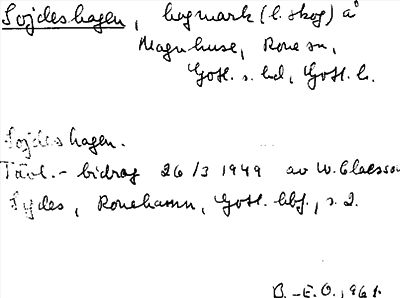 Sojdeshagen, hagmark (l. skog) å
Magnhuse, Rone sn,
Gotl. s. hd, Gotl. l.
Sojdeshagen.
Tävl.-bidrag 26/3 1949 av W. Claesson
Sydes, Ronehamn, Gotl. hbf., s. 2.
B.-E. O., 1961.